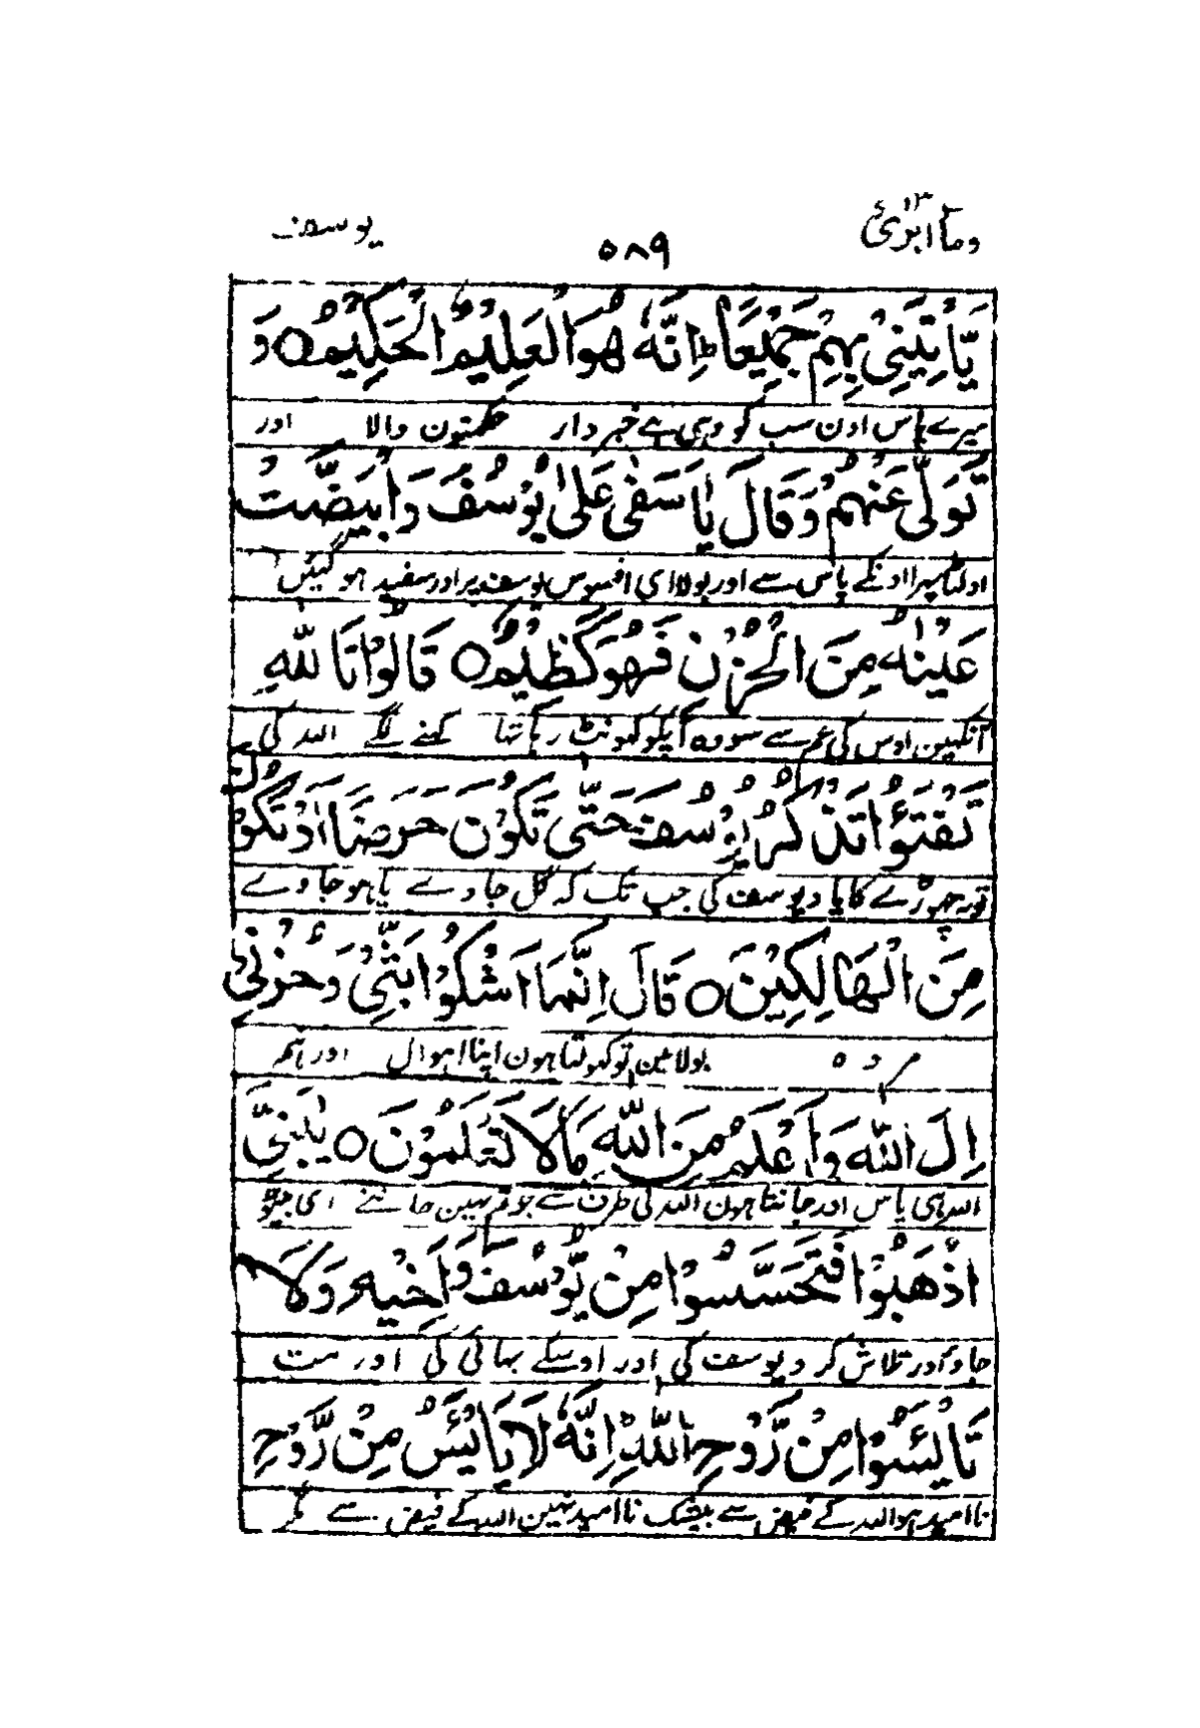 وماابرئ ١٣
٥٨٩
يوسف
يَّاْتِيَنِيْ بِهِمْ جَمِيْعًا ط اِنَّهٗ هُوَ الْعَلِيْمُ الْحَكِيْمُ ○ وَ
میرے پاس اون سب کو وہی ہے خبردار حکمتون والا اور
تَوَلّٰى عَنْهُمْ وَقَالَ يٰاَسَفٰى عَلٰى يُوْسُفَ وَابْيَضَّتْ
اولٹا پھرا اونکے پاس سے اور بولا ای افسوس یوسف پر اور سفید ہوگئیں
عَيْنٰهُ مِنَ الْحُزْنِ فَهُوَ كَظِيْمٌ ○ قَالُوْا تَاللّٰهِ
آنکھین اوس کی غم سے سووہ آپکو گھونٹ رہا تھا کہنے لگے اللہ کی
تَفْتَؤُا تَذْكُرُ يُوْسُفَ حَتّٰى تَكُوْنَ حَرَضًا اَوْ تَكُوْنَ
تو نہ چھوڑے گا یاد یوسف کی جب تک کہ گل جاوے یا ہو جاوے
مِنَ الْهَالِكِيْنَ ○ قَالَ اِنَّمَا اَشْكُوْا بَثِّيْ وَحُزْنِيْ
مردہ بولا مین تو کھولتا ہون اپنا احوال اور غم
اِلَى اللّٰهِ وَاَعْلَمُ مِنَ اللّٰهِ مَا لَا تَعْلَمُوْنَ ○ يٰبَنِيَّ
اللہ ہی پاس اور جانتا ہون اللہ کی طرف سے جو تم نہین جانتے ای بیٹو
اذْهَبُوْا فَتَحَسَّسُوْا مِنْ يُّوْسُفَ وَاَخِيْهِ وَلَا
جاؤ اور تلاش کرو یوسف کی اور اوسکے بھائی کی اور مت
تَايْئَسُوْا مِنْ رَّوْحِ اللّٰهِ ط اِنَّهٗ لَا يَايْئَسُ مِنْ رَّوْحِ
نا امید ہو اللہ کے فیض سے بیشک نا امید نہین اللہ کے فیض سے مگر